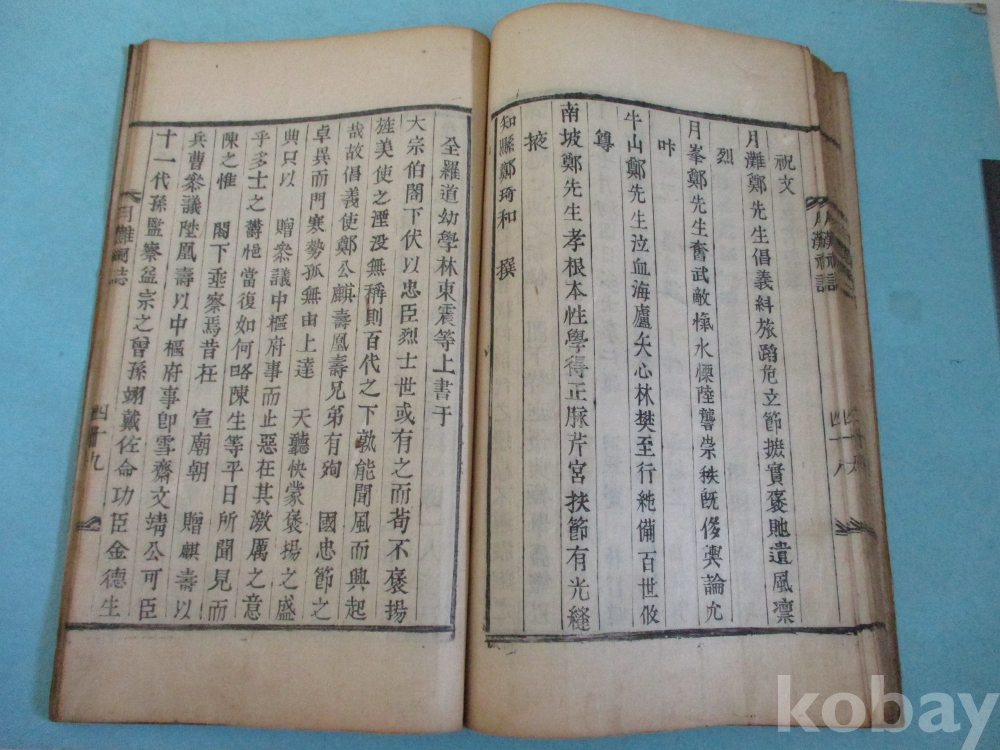 祝文
月灘鄭先生倡義糾旅蹈危立節摭實褒貤遺風凛
烈
月峯鄭先生奮武敵愾水慄陸讋崇秩旣侈輿論允
咔
牛山鄭先生泣血海廬矢心林樊至行純備百世攸
尊
南坡鄭先生孝根本性學得正脉芹宮扶節有光縫
掖
知縣鄭琦和 撰
四十八
全羅道幼學林東震等上書于
大宗伯閤下伏以忠臣烈士世或有之而苟不褒揚
旌美使之湮没無稱則百代之下孰能聞風而興起
哉故倡義使鄭公麒壽凰壽兄弟有殉 國忠節之
卓異而門寒勢孤無由上達 天聽快蒙褒揚之盛
典只以 贈叅議中樞府事而止惡在其激厲之意
乎多士之菀悒當復如何略陳生等平日所聞見而
陳之惟 閤下垂察焉昔在 宣廟朝 贈麒壽以
兵曹叅議陞凰壽以中樞府事卽雪齋文靖公可臣
十一代孫監察益宗之曾孫翊戴佐命功臣金德生
月灘祠誌
四十九
kobay